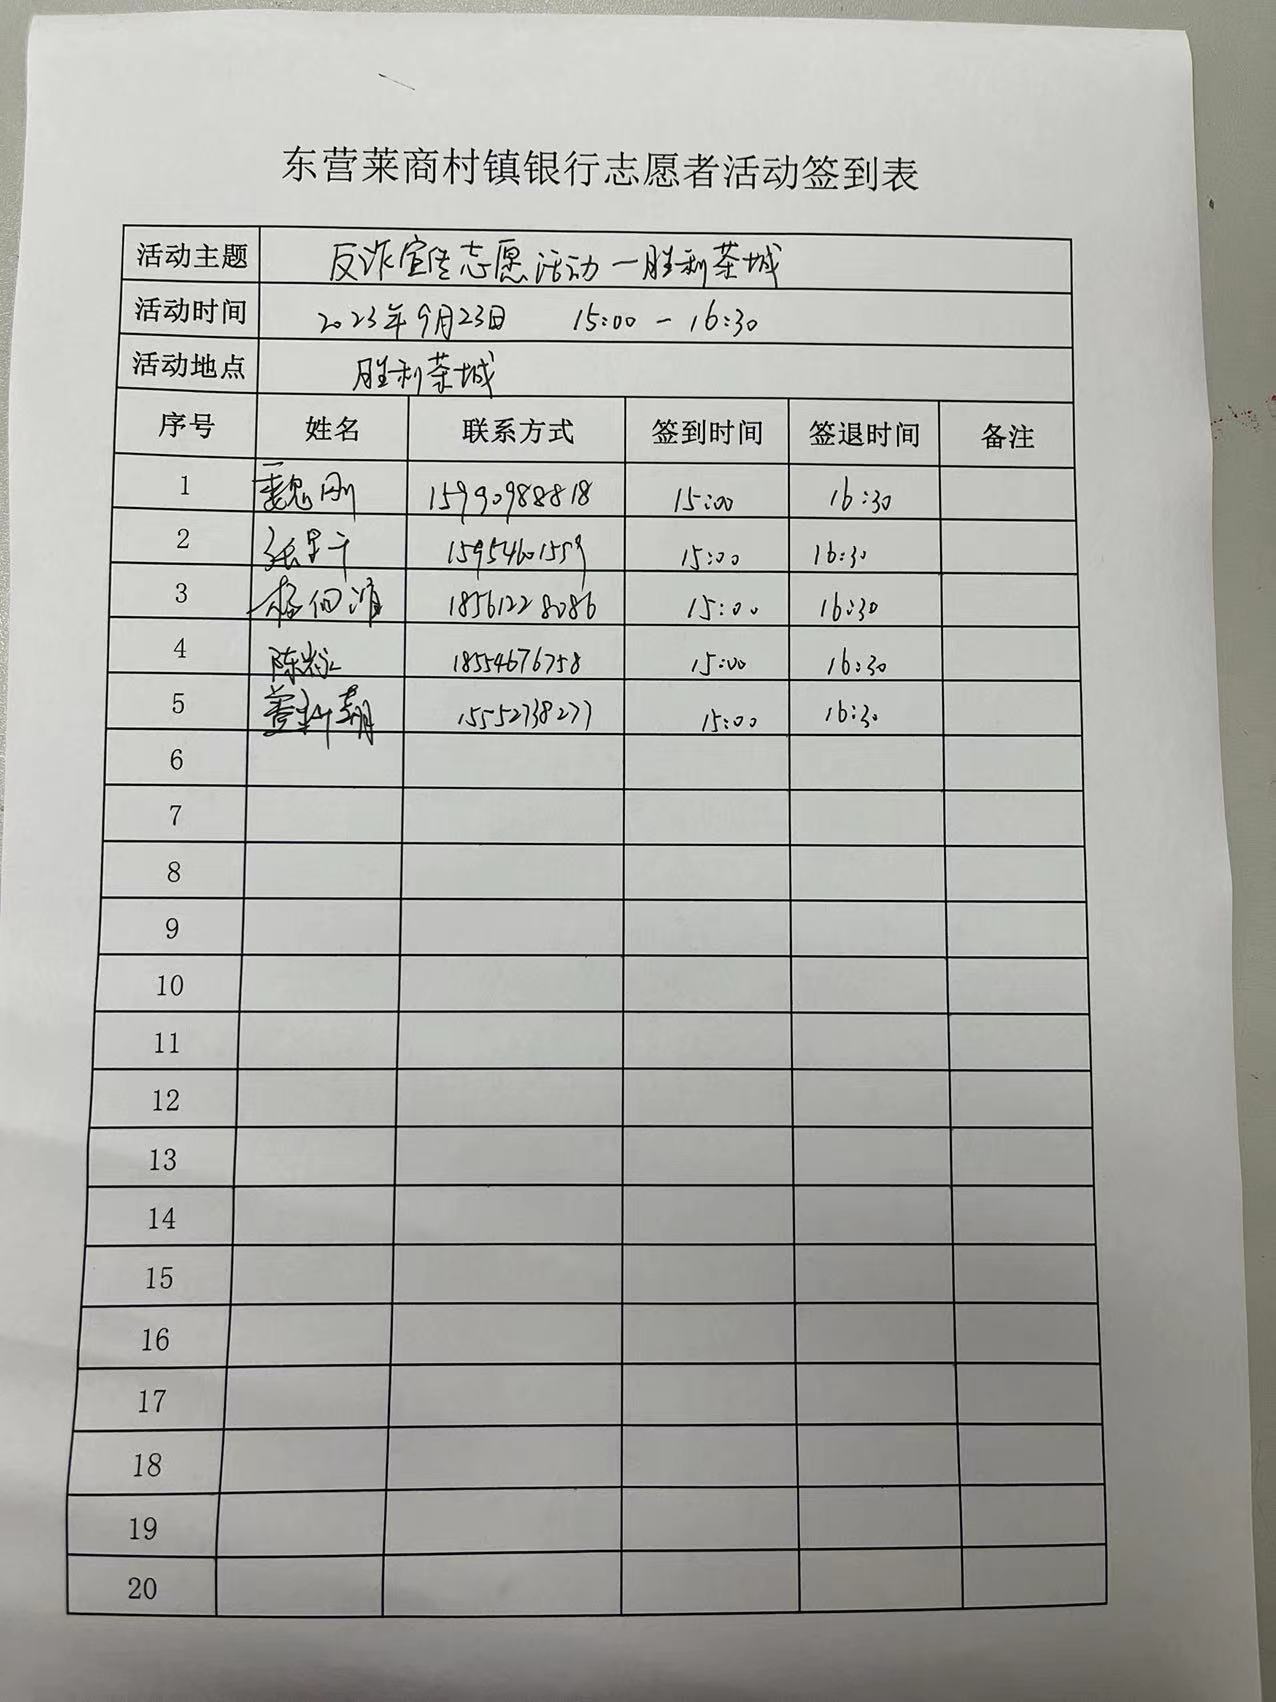 东营莱商村镇银行志愿者活动签到表
活动主题 反诈宣传志愿活动—胜利茶城
活动时间 2023年9月23日 15:00 - 16:30
活动地点 胜利茶城
序号 姓名 联系方式 签到时间 签退时间 备注
1 魏刚 15990988818 15:00 16:30
2 张 15954601559 15:00 16:30
3 杨 18561228086 15:00 16:30
4 陈 18554676758 15:00 16:30
5 15552738277 15:00 16:30
6
7
8
9
10
11
12
13
14
15
16
17
18
19
20